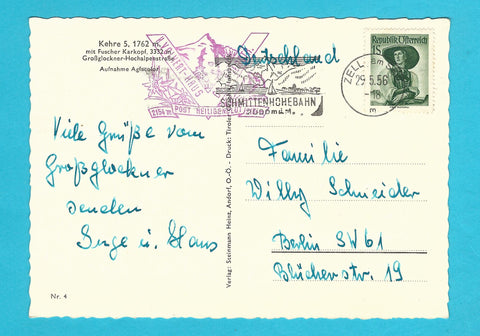 Kehre 5, 1762 m.
mit Fuscher Karkopf, 3332 m
Großglockner-Hochalpenstraße
Aufnahme Agfacolor
Deutschland
Republik Österreich
1S
ZELL
29.5.56
-18
SCHMITTENHÖHEBAHN
2154 m
POST HEILIGENBLUT
Viele Grüße vom
Großglockner
senden
Inge u. Hans
Familie
Willy Schneider
Berlin SW61
Blücherstr. 19
Nr. 4
Verlag: Steinmann Heinz, Andorf, O.-Ö. - Druck: